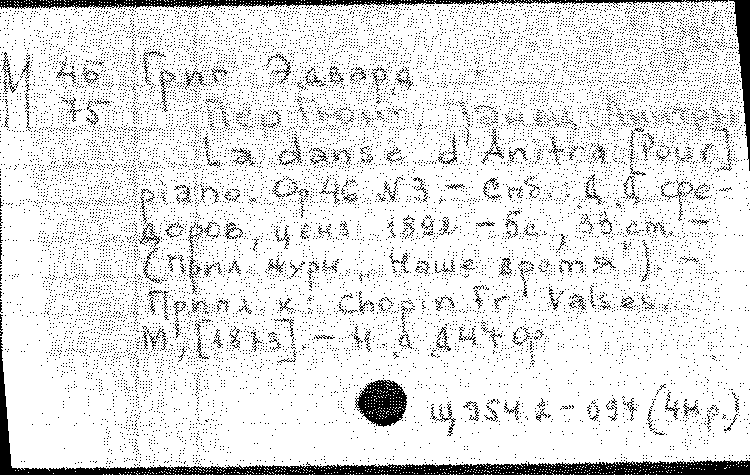 М 46 Григ Эдвард
75 Пер Гюнт. Танец Анитры
La danse d'Anitra [Pour]
piano. Op 46 N 3. – Спб.: Д. Д. Фе-
доров, ценз. 1892 – 5с., 33 cm. –
(Прил. журн. "Наше время"). –
Припл. к: Chopin Fr. Valses.
М., [1873]. – Н. д.
Щ 954.2 – 097 (4Нр.)